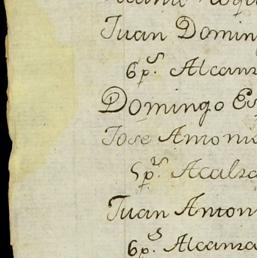 Juan Domin
6 p.s Alcanz
Domingo Es
Jose Antoni
5 p.s Acalza
Juan Anton
6 p.s Alcanza